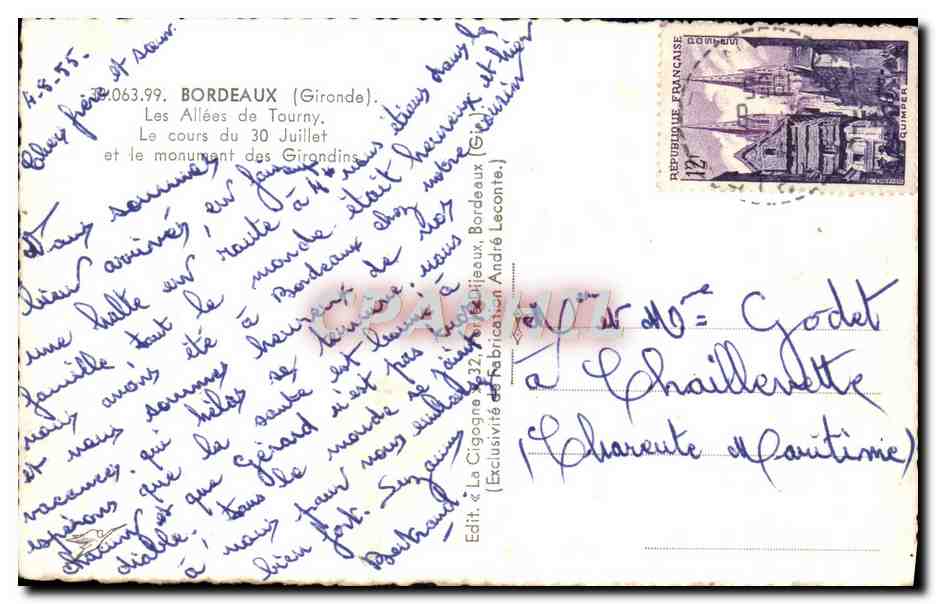 4-8-55.
Cher frère et sœur.
Nous sommes
bien arrivés, en faisant
une halte en route à 4h nous étions dans la
famille tout le monde était heureux et hier
nous avons été à Bordeaux chez notre cousin
et nous sommes heureux de nos
vacances qui hélas se termine
espérons que la santé est bonne à
chacun et que Gérard n'est pas trop
diable. tous le monde se joint
à nous pour vous embrasser
bien fort. Suzanne
Bertrand
33.063.99. BORDEAUX (Gironde).
Les Allées de Tourny.
Le cours du 30 Juillet
et le monument des Girondins
Edit. « La Cigogne », 32, Porte-Dijeaux, Bordeaux (Gir.)
(Exclusivité de Fabrication André Leconte.)
CPAPHIL
RÉPUBLIQUE FRANÇAISE
POSTES
12F
QUIMPER
Mr et Mme Godet
à Chaillevette
(Charente Maritime)